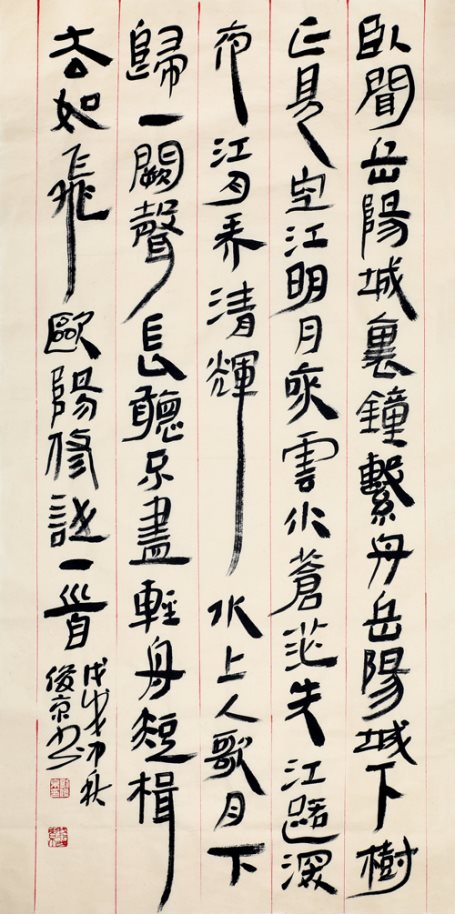 臥聞岳陽城裏鐘繫舟岳陽城下樹
正見空江明月來雲水蒼茫失江路深
夜江月弄清輝水上人歌月下
歸一闋聲長聽不盡輕舟短楫
去如飛歐陽修詩一首
戊戌秋
俊京書